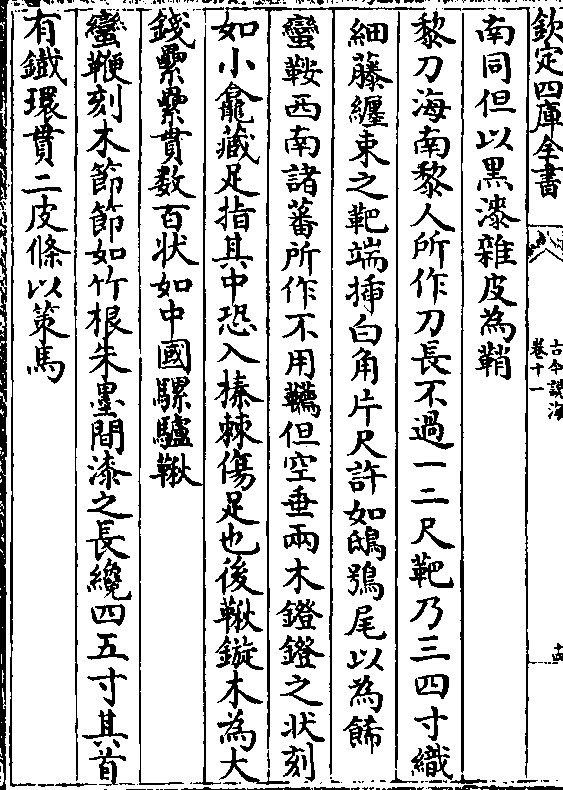 欽定四庫全書
古今說海
卷十一
十四
南同但以黒漆雜皮為鞘
黎刀海南黎人所作刀長不過一二尺靶乃三四寸織
細藤纏束之靶端揷白角片尺許如鴟鴞尾以為餙
蠻鞍西南諸蕃所作不用韉但空垂兩木鐙鐙之状刻
如小龕藏足指其中恐入榛棘傷足也後鞦鏇木為大
錢纍纍貫数百状如中國騾驢鞦
蠻鞭刻木節節如竹根朱墨間漆之長纔四五寸其首
有鐡環貫二皮條以策馬